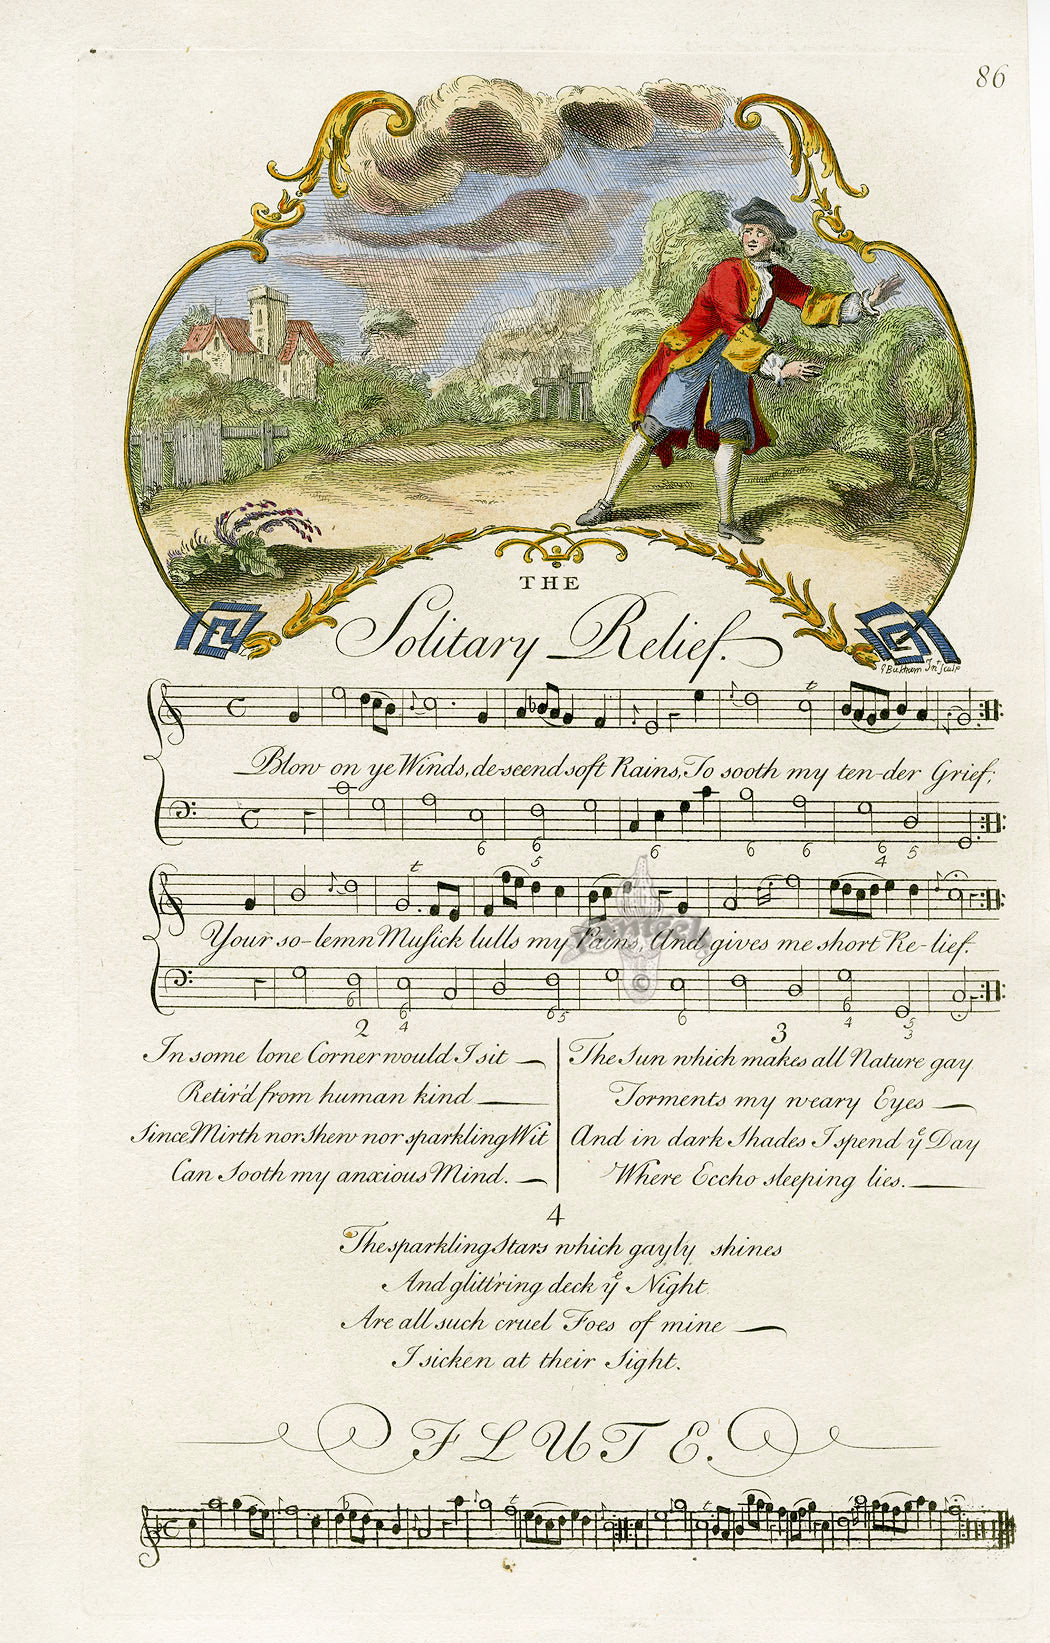 86
THE
Solitary Relief.
G Bickham Inv Sculp
Blow on ye Winds, de-scend soft Rains, To sooth my ten-der Grief;
6 6 5 6 6 6 6 4 5
Your so-lemn Musick lulls my Pains, And gives me short Re-lief.
6 6 4 6 5 6 6 4 5 3
2
In some lone Corner would I sit
Retir'd from human kind
Since Mirth nor Shew nor sparkling Wit
Can Sooth my anxious Mind.
3
The Sun which makes all Nature gay
Torments my weary Eyes
And in dark Shades I spend yͤ Day
Where Eccho sleeping lies.
4
The sparkling Stars which gayly shines
And glitt'ring deck yͤ Night
Are all such cruel Foes of mine
I sicken at their Sight.
FLUTE.